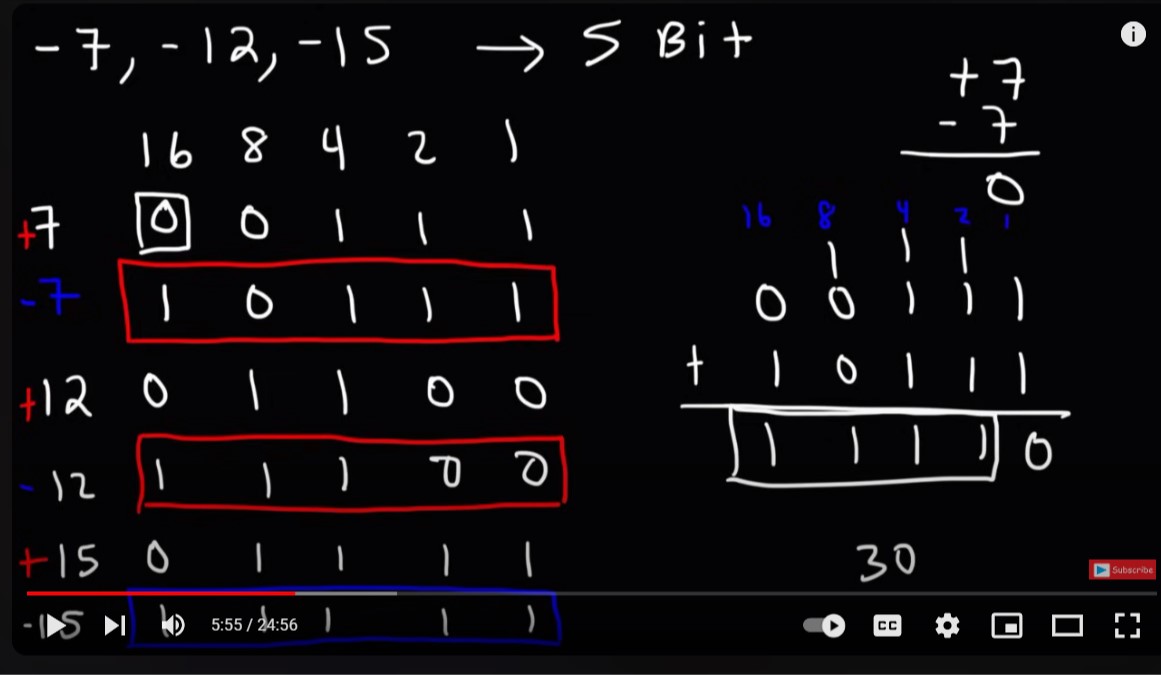 -7, -12, -15 → 5 Bit
16 8 4 2 1
+7 0 0 1 1 1
-7 1 0 1 1 1
+12 0 1 1 0 0
-12 1 1 1 0 0
+15 0 1 1 1 1
-15 1 1 1 1 1
+7
-7
0
16 8 4 2 1
1 1 1
0 0 1 1 1
+ 1 0 1 1 1
1 1 1 1 0
30
Subscribe
5:55 / 24:56
CC